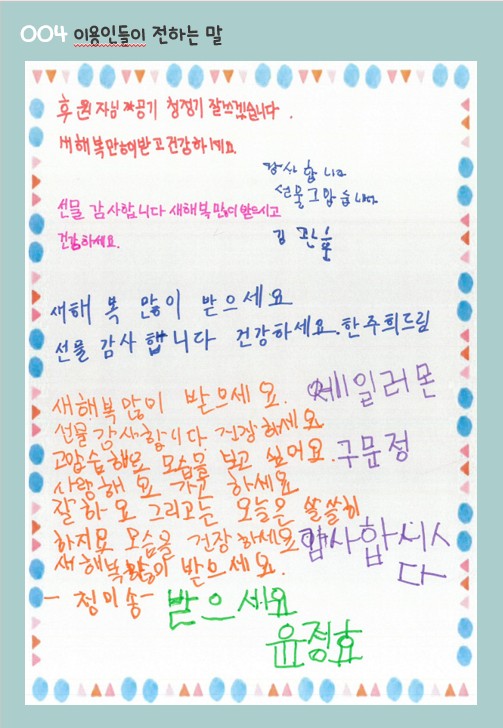 004 이용인들이 전하는 말
후원자님 공기 청정기 잘쓰겠습니다.
새해복많이받고건강하세요.
감사합니다
선물고맙습니다
김관훈
선물 감사합니다 새해복많이받으시고
건강하세요.
새해 복 많이 받으세요
선물 감사합니다 건강하세요.한주희드림
새해복많이 받으세요.
선물감사합니다 건강하세요
고맙습해요 모습을 보고 싶어요.
사랑해요 가주 하세요
잘하요 그리고는 오늘은 쌀쌀히
하지요 모습을 건강하세요
새해복많이 받으세요.
-청미송-
쎄일러몬
구문정
감사합시다
받으세요
윤정효